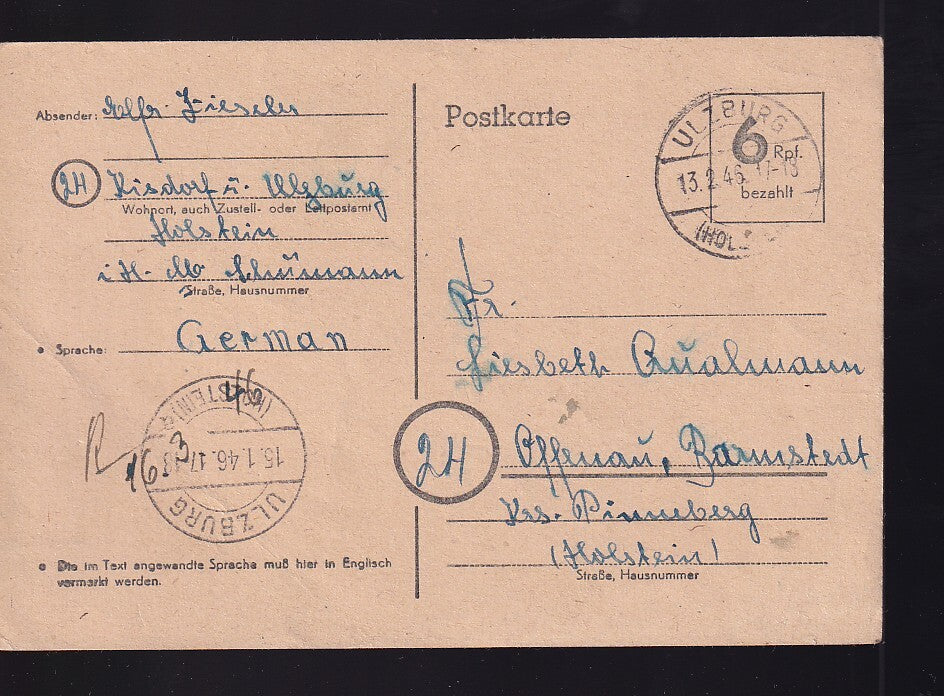 Absender:
24 Kisdorf ü. Ulzburg
Wohnort, auch Zustell- oder Leitpostamt
Holstein
i. H. Schümann
Straße, Hausnummer
Sprache: German
ULZBURG
15.1.46.17-18
(HOLSTEIN)
46
3
16
• Die im Text angewandte Sprache muß hier in Englisch
vermerkt werden.
Postkarte
6 Rpf.
bezahlt
ULZBURG
13.2.46.17-18
Fr.
Liesbeth Qualmann
24 Offenau, Barmstedt
Krs. Pinneberg
(Holstein)
Straße, Hausnummer